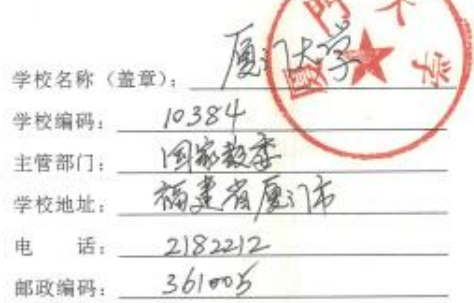 学校名称（盖章）：厦门大学
学校编码：10384
主管部门：国家教委
学校地址：福建省厦门市
电 话：2182212
邮政编码：361005
厦門大学